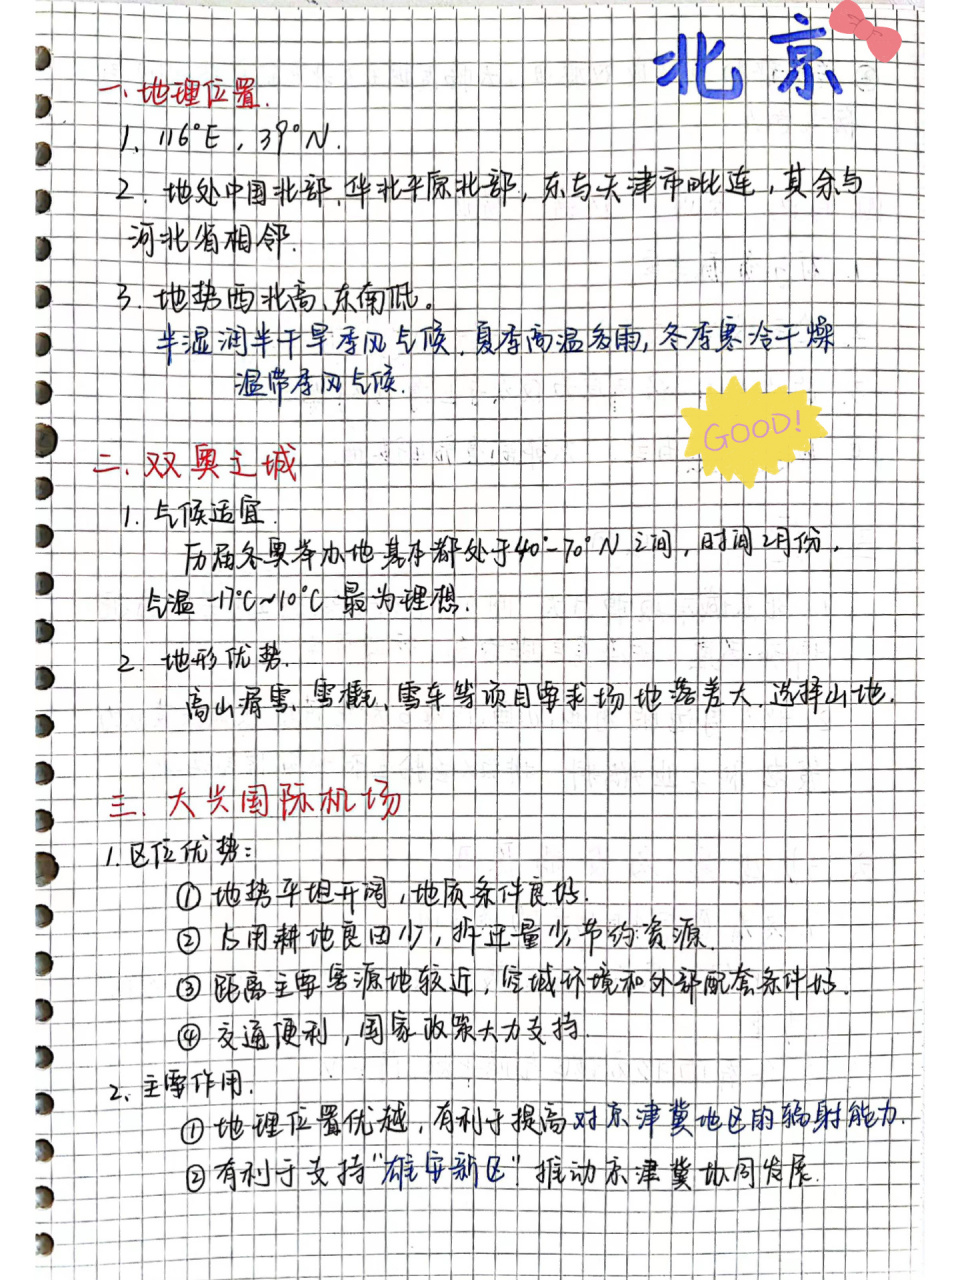 北京
一、地理位置.
1、116°E，39°N.
2. 地处中国北部、华北平原北部，东与天津市毗连，其余与
河北省相邻.
3. 地势西北高、东南低。
半湿润半干旱季风气候，夏季高温多雨，冬季寒冷干燥.
温带季风气候.
GOOD!
二、双奥之城
1. 气候适宜.
历届冬奥举办地基本都处于40°-70°N之间，时间2月份，
气温 -17℃~10℃ 最为理想.
2. 地形优势.
高山滑雪、雪橇、雪车等项目要求场地落差大，选择山地.
三、大兴国际机场
1. 区位优势：
① 地势平坦开阔，地质条件良好.
② 占用耕地良田少，拆迁量少节约资源.
③ 距离主要客源地较近，空域环境和外部配套条件好.
④ 交通便利，国家政策大力支持.
2、主要作用.
① 地理位置优越，有利于提高对京津冀地区的辐射能力.
② 有利于支持“雄安新区”推动京津冀协同发展.